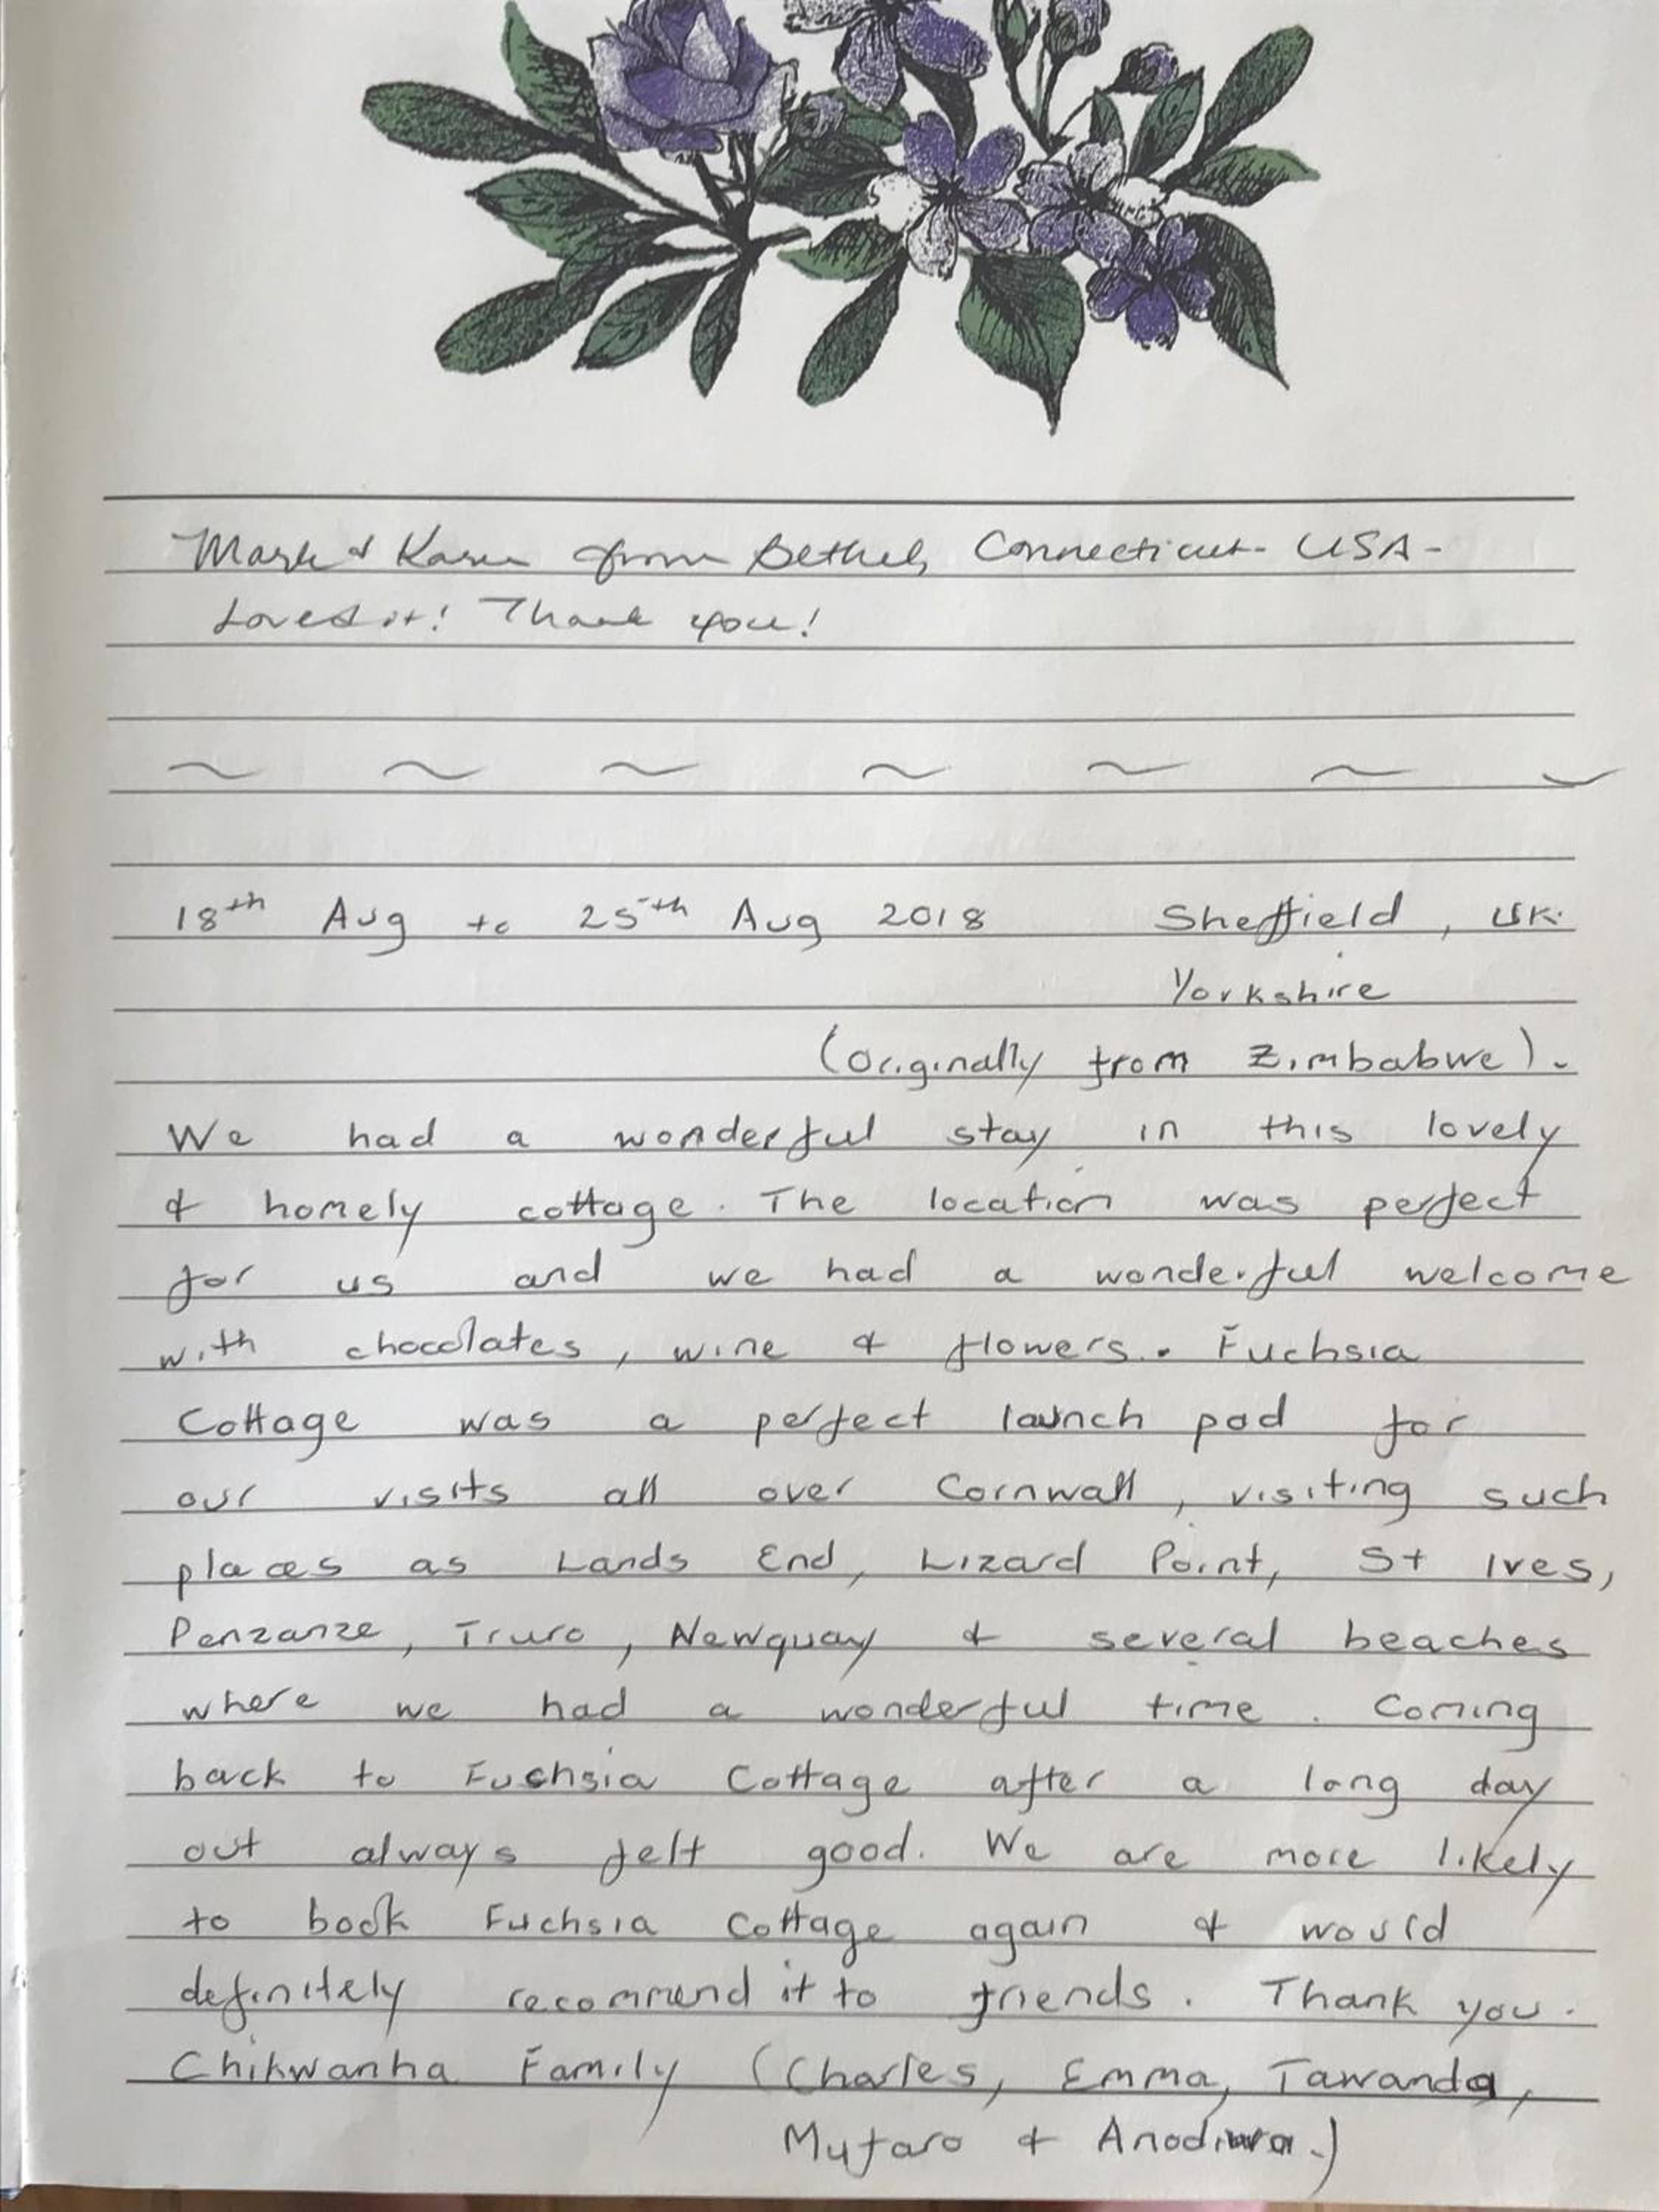 Mark & Karen from Bethel, Connecticut - USA -
Loved it! Thank you!
~ ~ ~ ~ ~ ~ ~
18th Aug to 25th Aug 2018 Sheffield, UK.
Yorkshire
(Originally from Zimbabwe).
We had a wonderful stay in this lovely
& homely cottage. The location was perfect
for us and we had a wonderful welcome
with chocolates, wine & flowers. Fuchsia
Cottage was a perfect launch pad for
our visits all over Cornwall, visiting such
places as Lands End, Lizard Point, St Ives,
Penzanze, Truro, Newquay & several beaches
where we had a wonderful time. Coming
back to Fuchsia Cottage after a long day
out always felt good. We are more likely
to book Fuchsia Cottage again & would
definitely recommend it to friends. Thank you.
Chikwanha Family (Charles, Emma, Tawanda,
Mufaro & Anodiwa.)